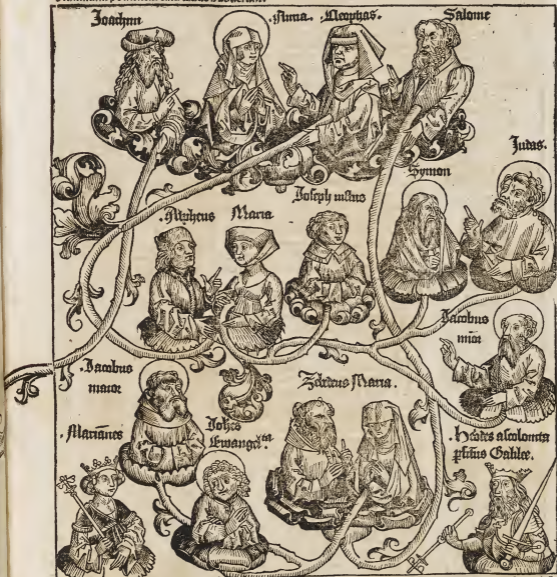 Joachim
Anna. Cleophas.
Salome
Judas.
Symon
Joseph iustus
Alpheus Maria
Jacobus
miōr
Jacobus
maior
Zebedeus Maria.
Johēs
Ewangelᵗᵃ
Mariannes
Herodes ascolonita
Galilee.